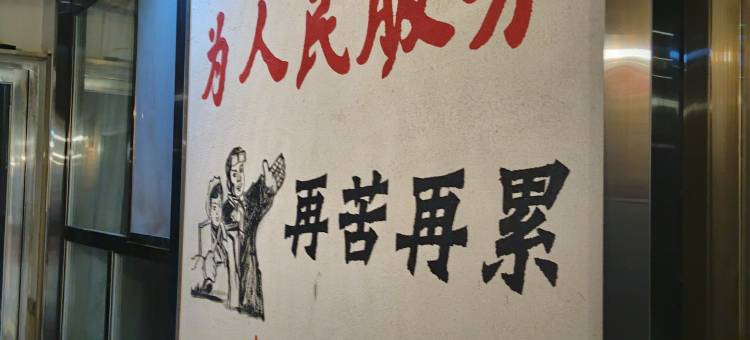 为人民服务
再苦再累